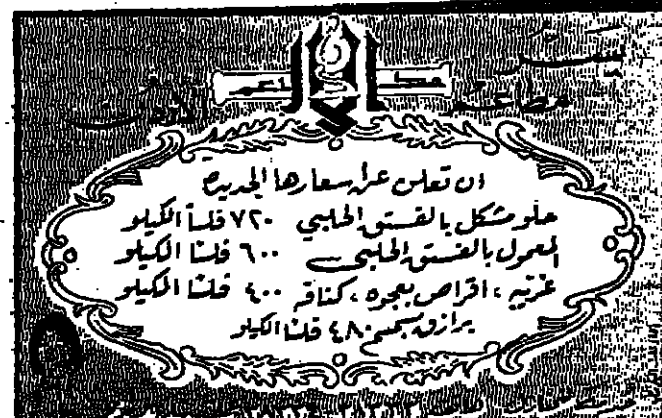 يسر
مطاعم
مطاعم
ان تعلن عن اسعارها الجديدة
حلو مشكل بالفستق الحلبي ٧٢٠ فلساً الكيلو
المعمول بالفستق الحلبي ٦٠٠ فلسًا الكيلو
غزيه ، اقراص بعجوه ، كنافه ٤٠٠ فلسًا الكيلو
برازق بسمسم ٤٨٠ فلسًا الكيلو